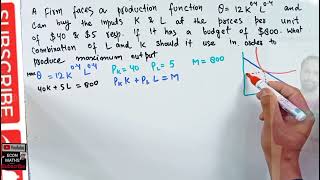 A Firm faces a production function Q = 12 K^0.4 L^0.4 and
Can buy the inputs K & L at the prices per unit
of $40 & $5 resp. If it has a budget of $800. What
combination of L and K should it use in order to
produce maximum output
max Q = 12 K^0.4 L^0.4 P_K = 40 P_L = 5 M = 800
40K + 5L = 800 P_K K + P_L L = M
SUBSCRIBE
YouTube
ECON
MATHS